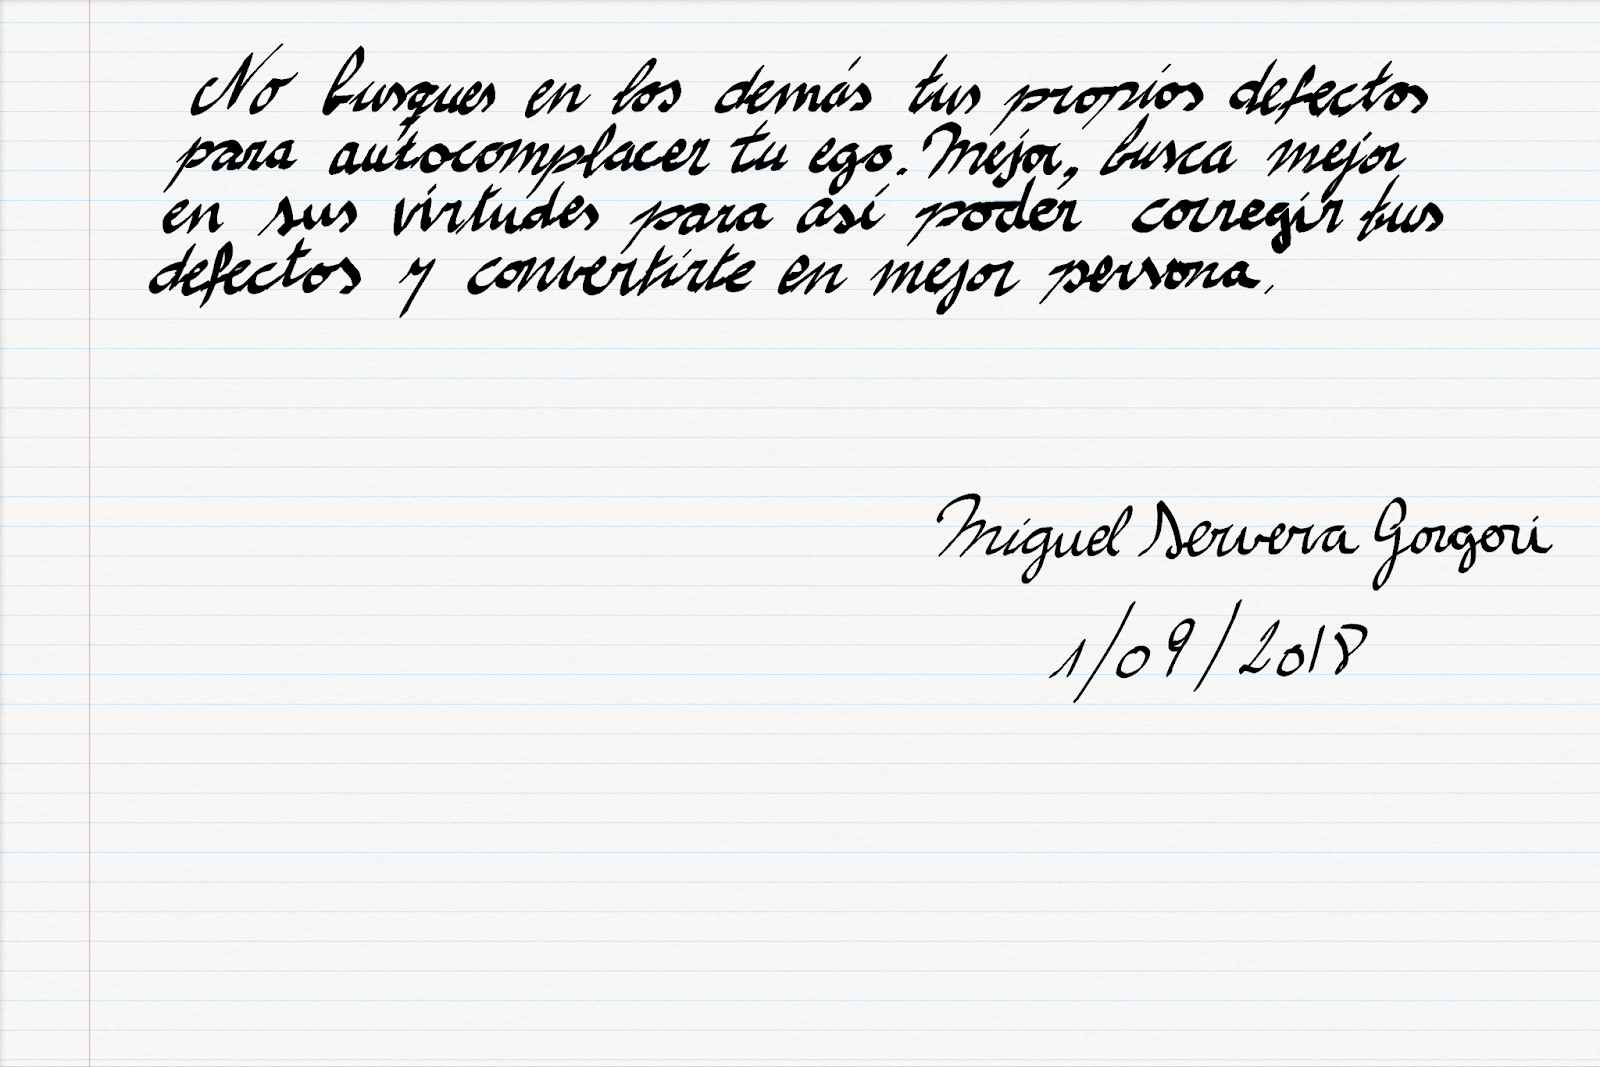 No busques en los demás tus propios defectos
para autocomplacer tu ego. Mejor, busca mejor
en sus virtudes para así poder corregir tus
defectos y convertirte en mejor persona.
Miguel Servera Gorgori
1/09/2018